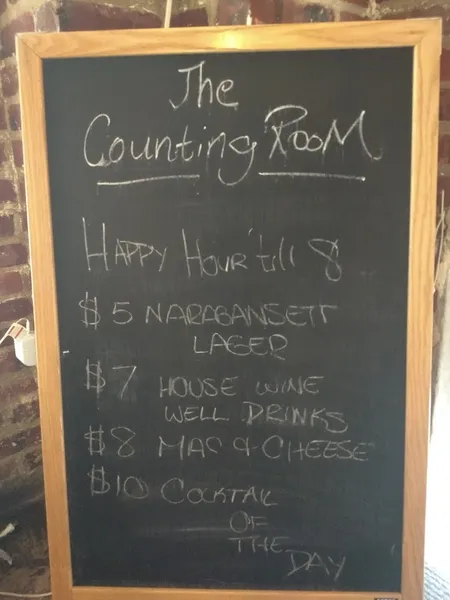 The
Counting RooM
HAPPY HOUR 'till 8
$5 NARAGANSETT
LAGER
$7 HOUSE WINE
WELL DRINKS
$8 MAC & CHEESE
$10 COCKTAIL
OF
THE
DAY